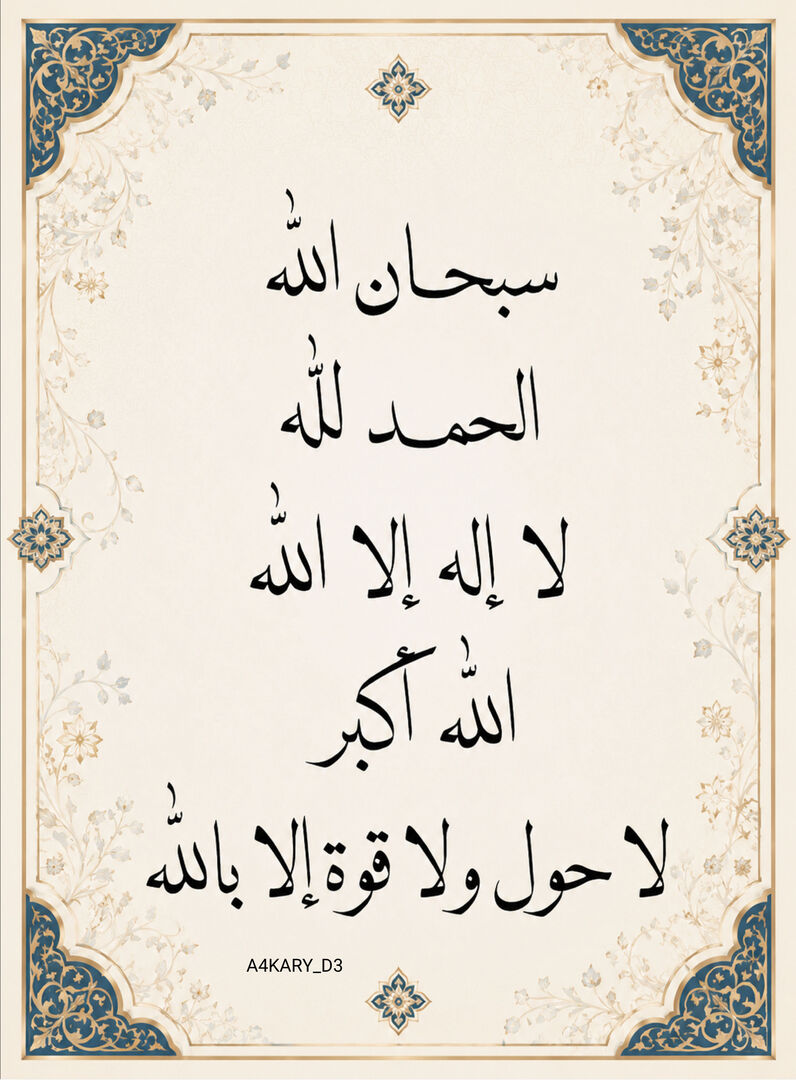 سبحان الله
الحمد لله
لا إله إلا الله
الله أكبر
لا حول ولا قوة إلا بالله
A4KARY_D3